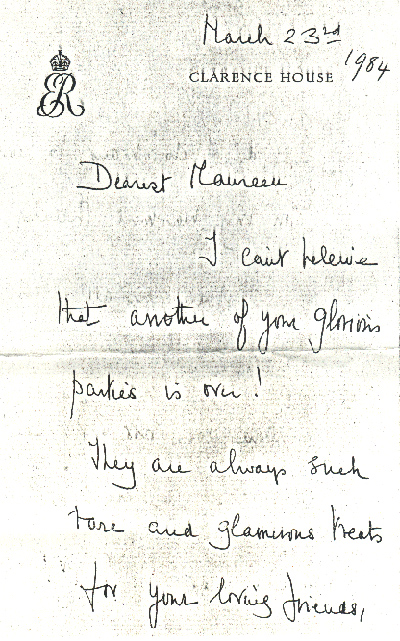 March 23rd
1984
CLARENCE HOUSE
ER
Dearest Maureen
I can't believe
that another of your glorious
parties is over!
They are always such
rare and glamorous treats
for your loving friends,